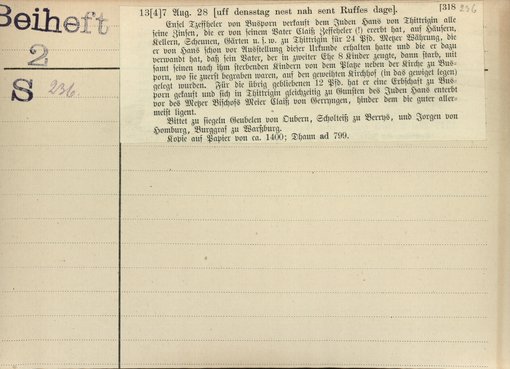 Beiheft
2
S 236
13[4]7 Aug. 28 [uff densstag nest nah sent Ruffes dage]. [318 236
Ensel Tzeffheler von Busporn verkauft dem Juden Hans von Thittrigin alle
seine Zinsen, die er von seinem Vater Claiß Zeffeheler (!) ererbt hat, auf Häusern,
Kellern, Scheunen, Gärten u. s. w. zu Thittrigin für 24 Pfd. Metzer Währung, die
er von Hans schon vor Ausstellung dieser Urkunde erhalten hatte und die er dazu
verwandt hat, daß sein Vater, der in zweiter Ehe 8 Kinder zeugte, dann starb, mit
samt seinen nach ihm sterbenden Kindern von dem Platze neben der Kirche zu Bus-
porn, wo sie zuerst begraben waren, auf den geweihten Kirchhof (in das gewiget legen)
gelegt wurden. Für die übrig gebliebenen 12 Pfd. hat er eine Erbschaft zu Bus-
porn gekauft und sich in Thittrigin gleichzeitig zu Gunsten des Juden Hans enterbt
vor des Metzer Bischofs Meier Claiß von Gerryngen, hinder dem die guter aller-
meist ligent.
Bittet zu siegeln Geubelen von Oubern, Scholteiß zu Berrys, und Jorgen von
Homburg, Burggraf zu Warßburg.
Kopie auf Papier von ca. 1400; Dhaun ad 799.